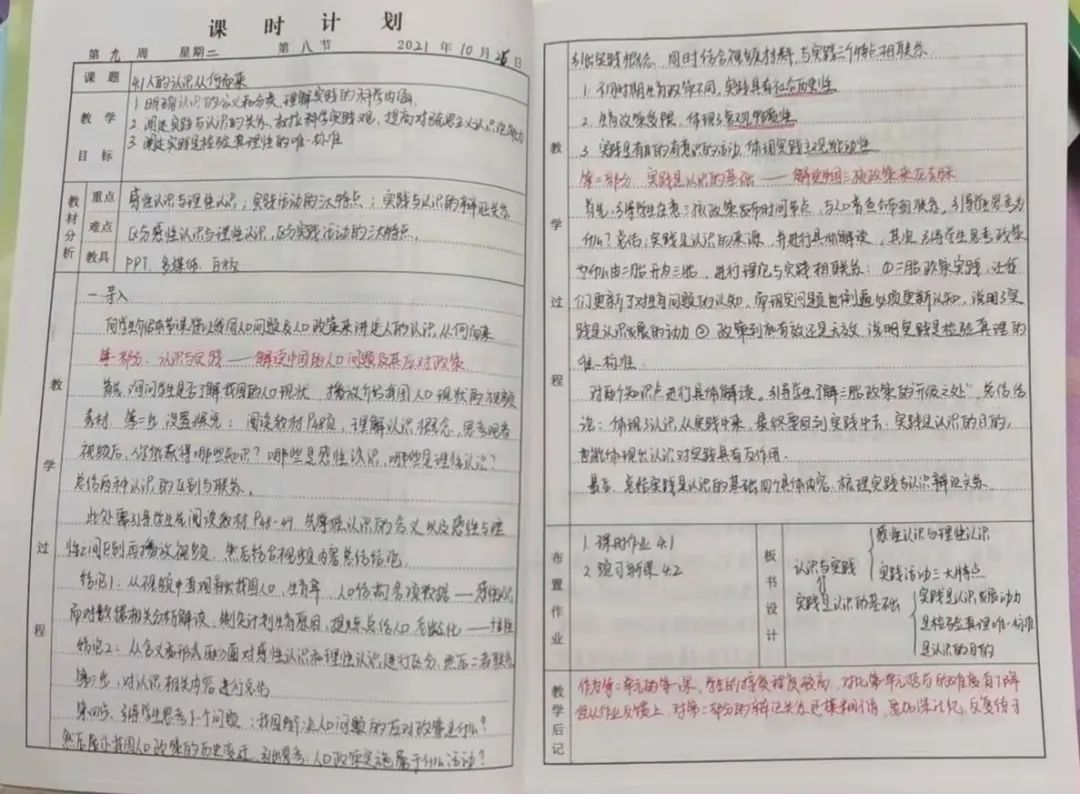 课时计划
第九周 星期二 第八节 2021年10月 日
课题 4.1人的认识从何而来
教学目标
1. 明确认识的含义和分类，理解实践的 内涵.
2. 阐述实践与认识的关系，树立科学实践观，提高对 主义认识论
3. 阐述实践是检验真理性的唯一标准
教材分析
重点 感性认识与理性认识；实践活动的三大特点；实践与认识的辩证关系
难点 区分感性认识与理性认识，区分实践活动的三大特点.
教具 PPT、多媒体、白板
教学过程
一.导入
向学生 本节课 我国人口问题及人口政策来讲述人的认识从何而来
第一部分：认识与实践——解读中国的人口问题及其应对政策
首先，询问学生是否了解我国的人口现状，播放介绍我国人口现状的视频
素材，第二步，设置探究：阅读教材 ，理解认识概念，思考观看
视频后，你能获得哪些知识？哪些是感性认识，哪些是理性认识？
总结两种认识的区别与联系。
此处要引导学生先阅读教材P48-49，先掌握认识的含义以及感性与理
性之间区别再播放视频，然后结合视频内容总结结论.
结论1：从视频中直观看出我国人口、生育率、人口结构各项数据——感性认识
而对数据相关分析解读， 计划生育原因，提炼总结人口老龄化——理性
结论2：从含义和形式 方面对感性认识和理性认识进行区分，然后二者联系
第三步，对认识相关内容进行总结
第四步，引导学生思考下个问题：我国解决人口问题的应对政策是什么？
然后展示我国人口政策的历史变迁，引出思考：人口政策实施属于什么活动？
教学过程
引出实践概念，同时结合视频材料，与实践三个特点相联系.
1. 不同时期生育政策不同，实践具有社会历史性
2. 生育政策 ，体现了客观物质性
3. 实践是有目的有意识的活动，体现实践主观能动性
第二部分，实践是认识的基础——解读中国三孩政策来龙去脉
首先，引导学生注意三孩政策 时间节点，与人口普查 联系。引导学生思考为
什么？总结：实践是认识的来源，并进行具体解读，其次，引导学生思考政策
为何由二胎开放三胎，进行理论与实践相联系：①二胎政策实践，让我
们更新了对生育问题的认知，而现实问题也倒逼必须更新认知，说明了实
践是认识发展的动力②政策到底有效还是无效，说明实践是检验真理的
唯一标准
对两个知识点进行具体解读。引导学生了解三胎政策的“升级之处”，总结结
论：体现了认识从实践中来，最终要回到实践中去；实践是认识的目的，
也能体现出认识对实践具有反作用.
最后，总结实践是认识的基础四个具体内容，梳理实践与认识辩证关系.
布置作业
1. 课时作业 4.1
2. 预习新课 4.2
板书设计
认识与实践
感性认识与理性认识
实践活动三大特点
实践是认识的基础
实践是认识发展动力
是检验真理唯一标准
是认识的目的
教学后记
作为第二单元的第一课，学生的接受程度较高，对比第一单元哲 的难度有下降
但从作业反馈上，对第二部分的辩证关系还模糊不清，要加深记忆，反复练习